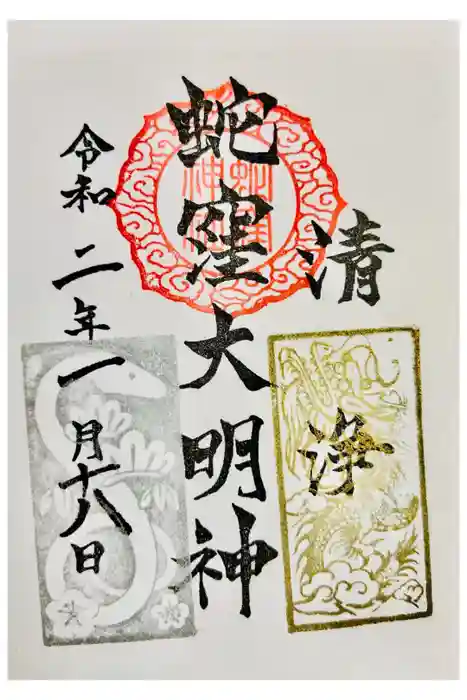 清浄
蛇窪大明神
令和二年一月十八日